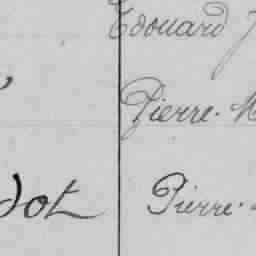 Edouard J
Pierre. M
dot Pierre.